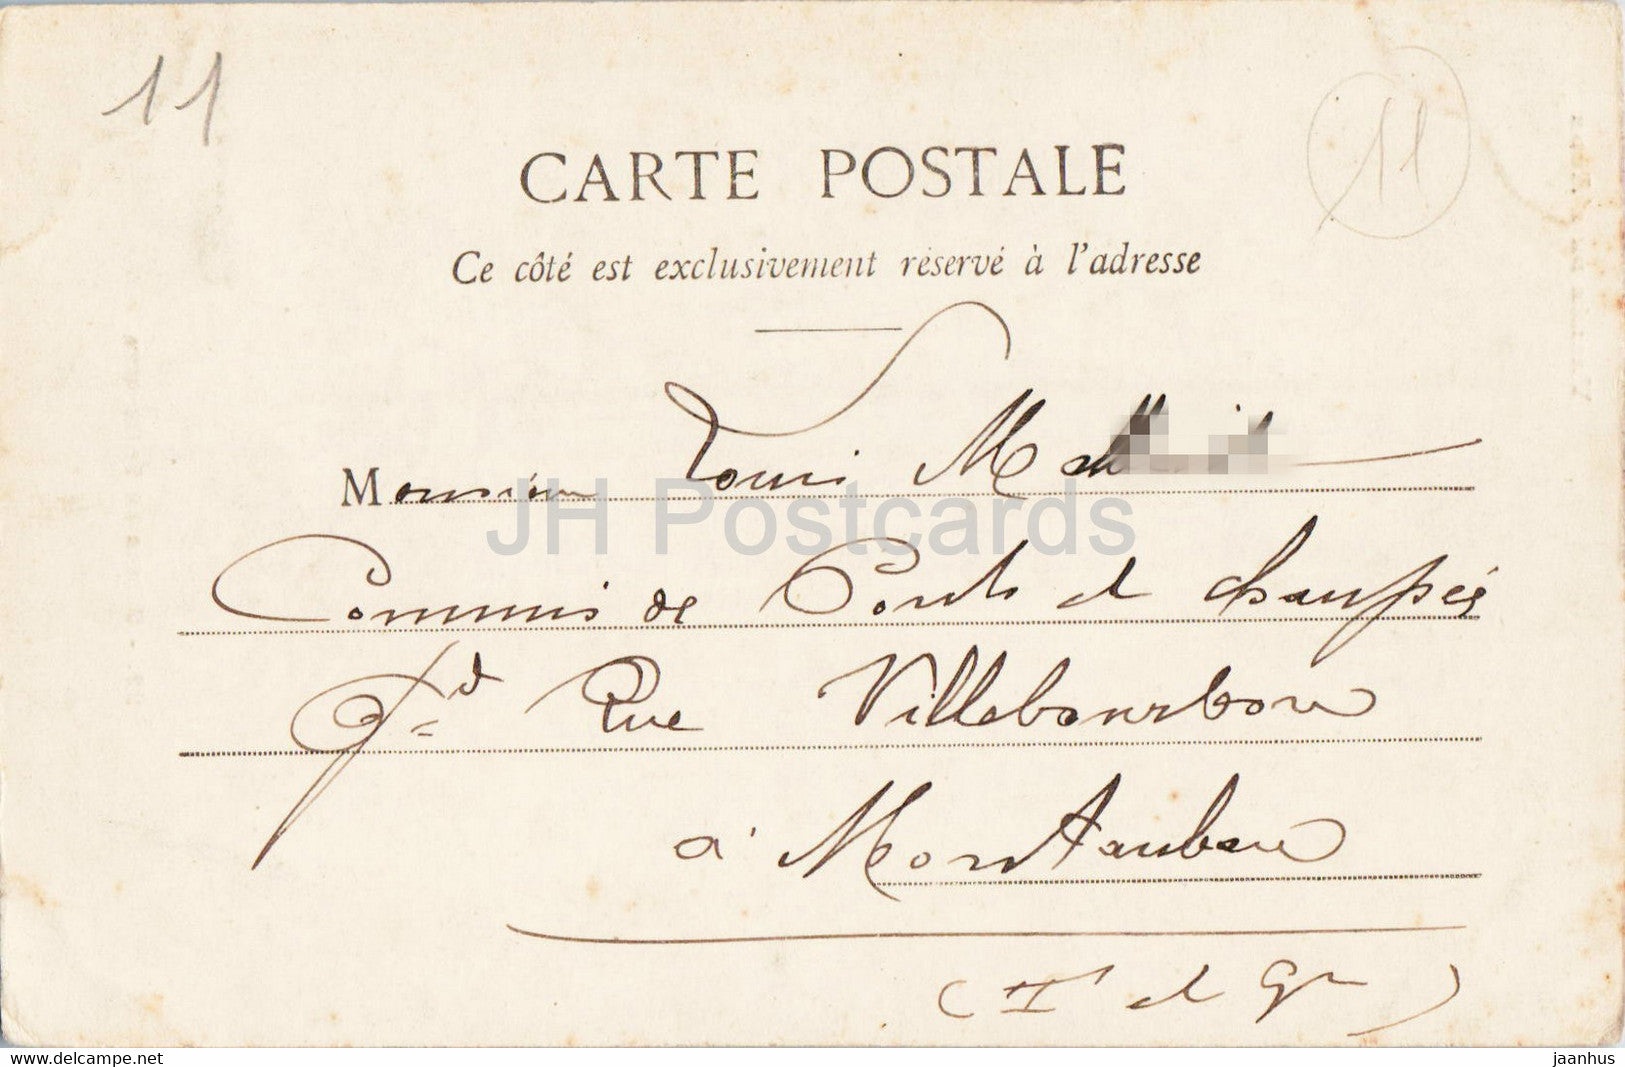 11
11
CARTE POSTALE
Ce côté est exclusivement réservé à l'adresse
Monsieur Louis
JH Postcards
Commis de Ponts et Chaussées
Gd Rue Villebourbon
à Montauban
(Tn et Gne)
www.delcampe.net
jaanhus